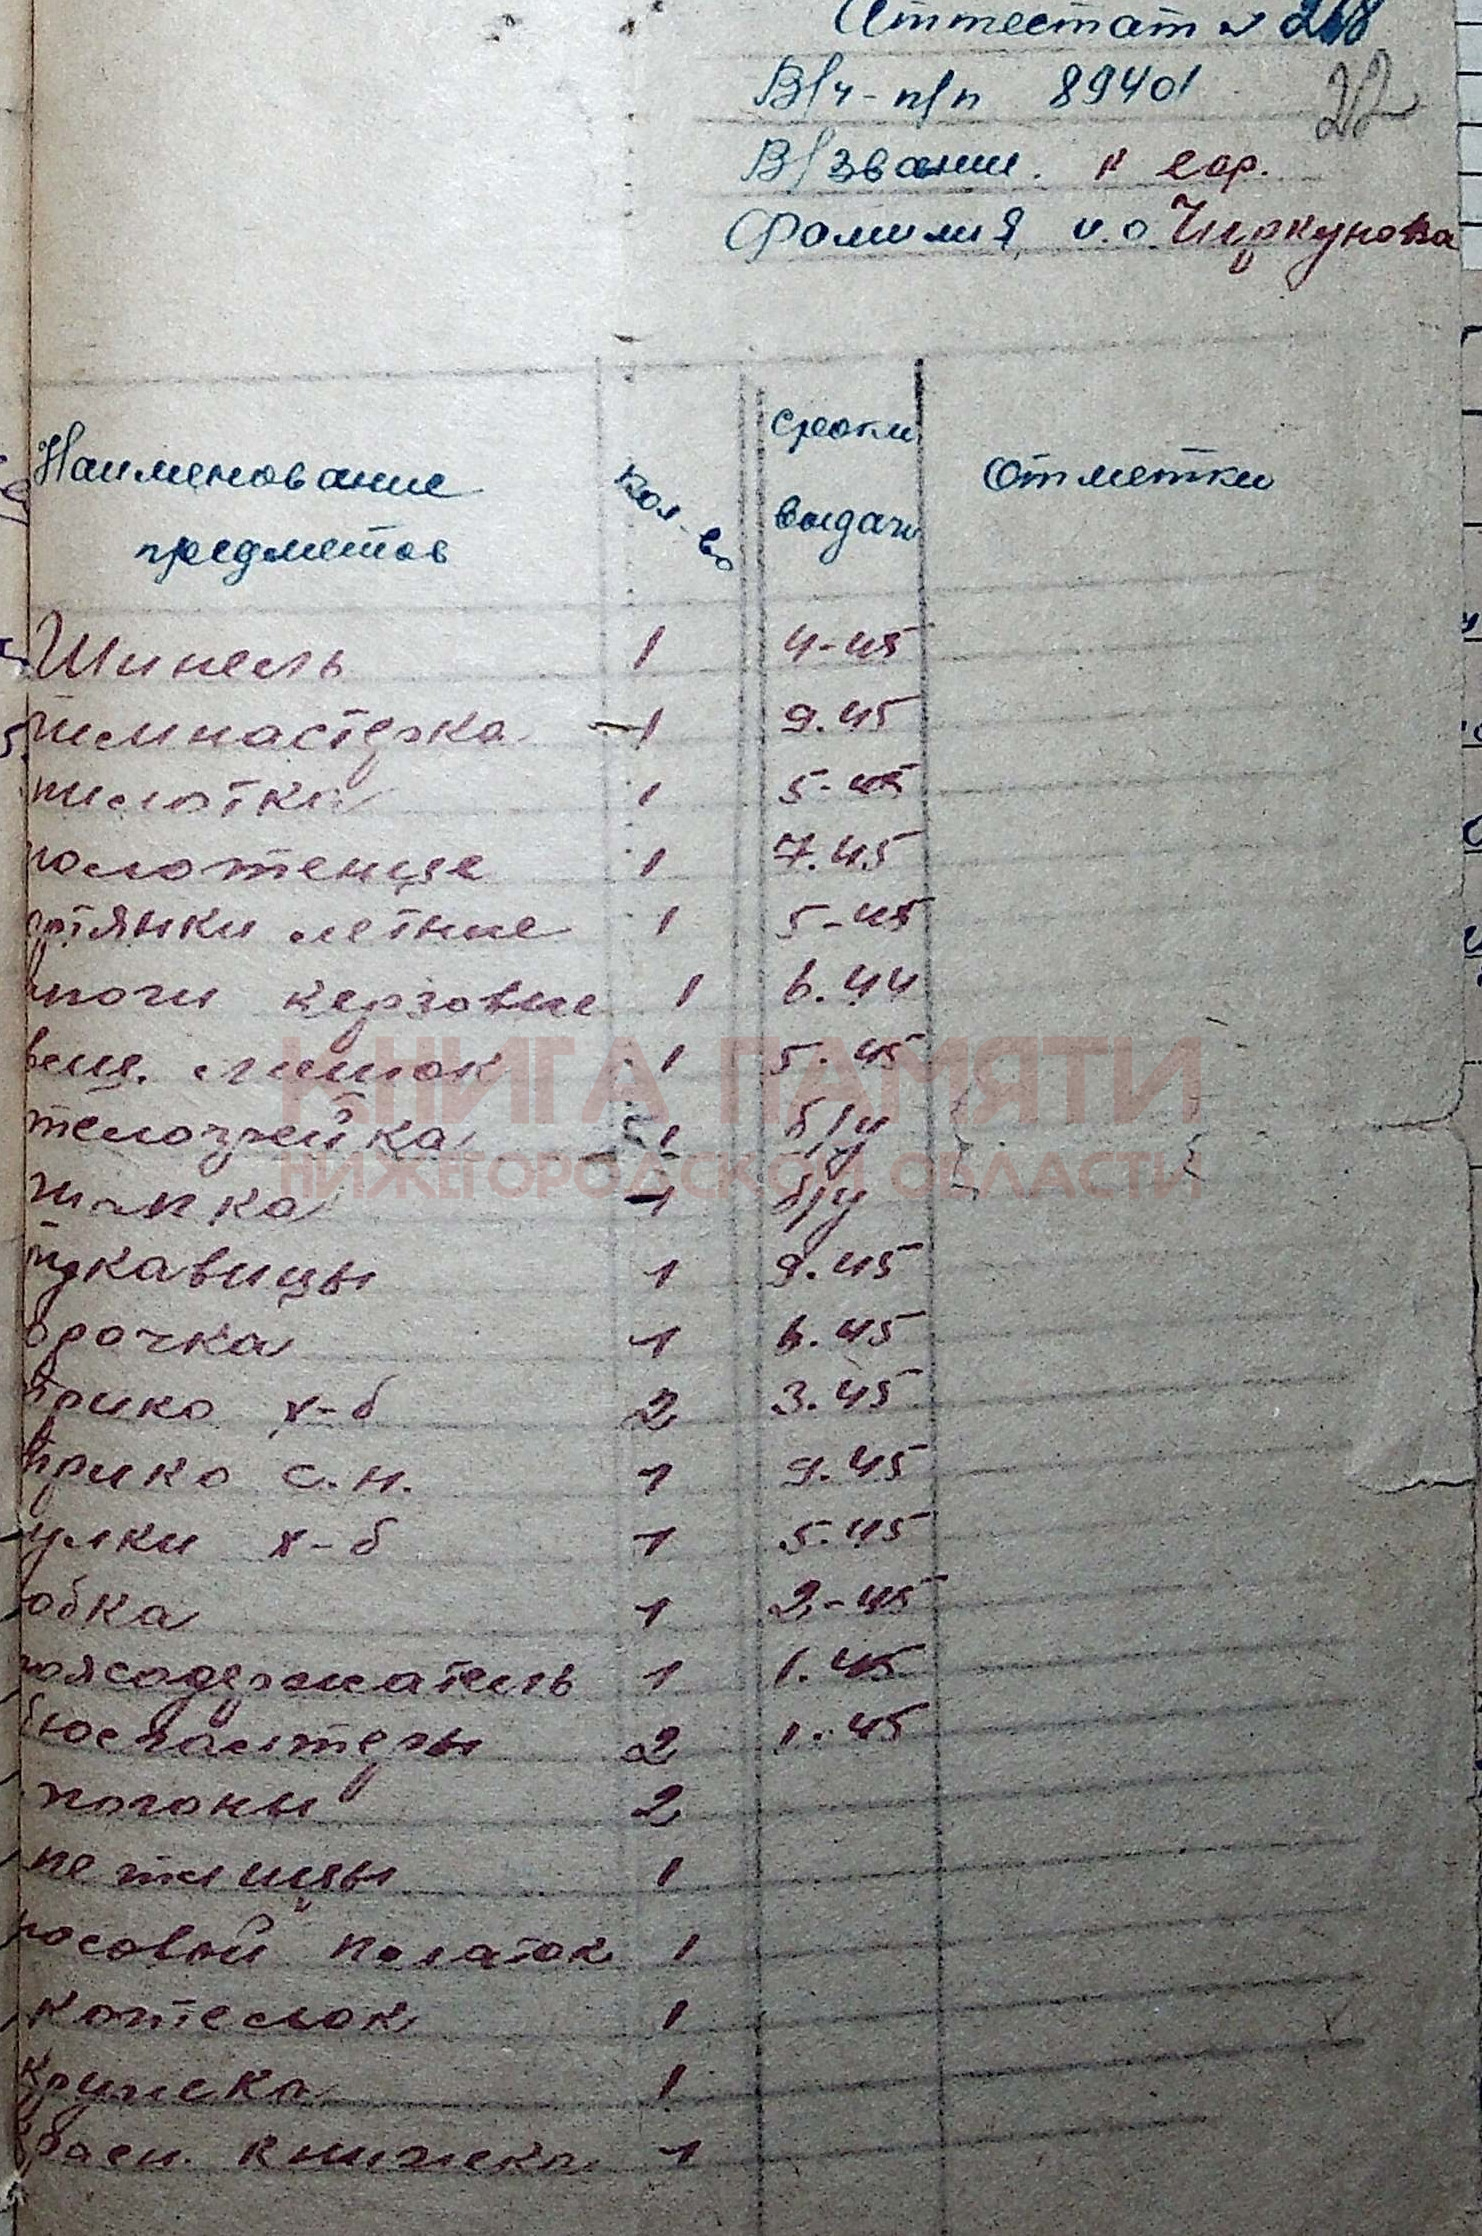 Аттестат № 268
22
В/ч-п/п 89401
В/звание. к еф.
Фамилия и.о. Чиркунова
Наименование предметов Кол-во Сроки выдачи Отметки
Шинель 1 4-45
гимнастерка 1 9.45
пилотка 1 5-45
полотенце 1 7.45
портянки летние 1 5-45
сапоги керзовые 1 6.44
вещ. мешок 1 5.45
телогрейка 1 б/у
шапка 1 б/у
рукавицы 1 9.45
сорочка 1 6.45
трико х-б 2 3.45
трико с.н. 1 9.45
чулки х-б 1 5.45
юбка 1 2-45
поясодержатель 1 1.45
бюсгалтеры 2 1.45
погоны 2
петлицы 1
носовой платок 1
котелок 1
кружка 1
красн. книжка 1
КНИГА ПАМЯТИ
НИЖЕГОРОДСКОЙ ОБЛАСТИ